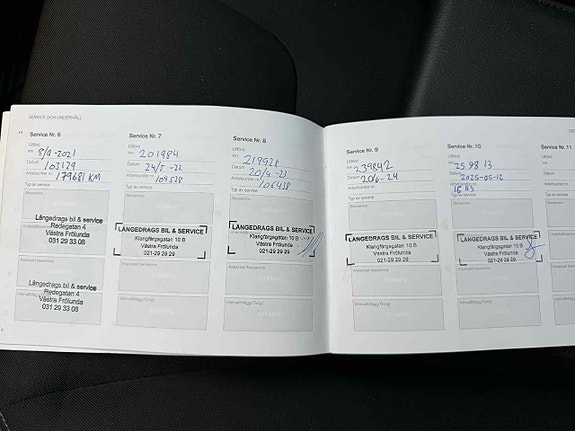 SERVICE OCH UNDERHÅLL
Service Nr. 6
Utförd
km 8/9-2021
Datum 103129
Arbetsorder nr. 179681 KM
Typ av service
Långedrags bil & service
Redegatan 4
Västra Frölunda
031 29 33 08
Långedrags bil & service
Redegatan 4
Västra Frölunda
031 29 33 08
Service Nr. 7
Utförd
km 201984
Datum 24/5-22
Arbetsorder nr. 104528
Typ av service
LÅNGEDRAGS BIL & SERVICE
Klangfärgsgatan 10 B
Västra Frölunda
021-29 29 29
Service Nr. 8
Utförd
km 219928
Datum 20/4-23
Arbetsorder nr. 106438
Typ av service
LÅNGEDRAGS BIL & SERVICE
Klangfärgsgatan 10 B
Västra Frölunda
021-29 29 29
Service Nr. 9
Utförd
km 239842
Datum 20/6-24
Arbetsorder nr.
Typ av service
LÅNGEDRAGS BIL & SERVICE
Klangfärgsgatan 10 B
Västra Frölunda
021-29 29 29
Service Nr. 10
Utförd
km 25 98 13
Datum 2025-05-12
Arbetsorder nr.
Typ av service
LÅNGEDRAGS BIL & SERVICE
Klangfärgsgatan 10 B
Västra Frölunda
021-29 29 29
Service Nr. 11
Utförd
km
Datum